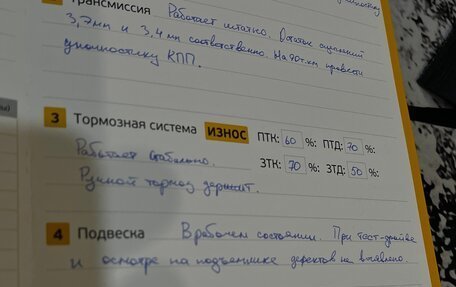 диагностику
Трансмиссия Работает штатно. Остаток сцеплений
3,7мм и 3,4мм соответственно. На 90т.км провести
диагностику КПП.
3 Тормозная система ИЗНОС ПТК: 60 %: ПТД: 70 %:
Работает стабильно. ЗТК: 70 %: ЗТД: 50 %:
Ручной тормоз держит.
4 Подвеска В рабочем состоянии. При тест-драйве
и осмотре на подъемнике дефектов не выявлено.